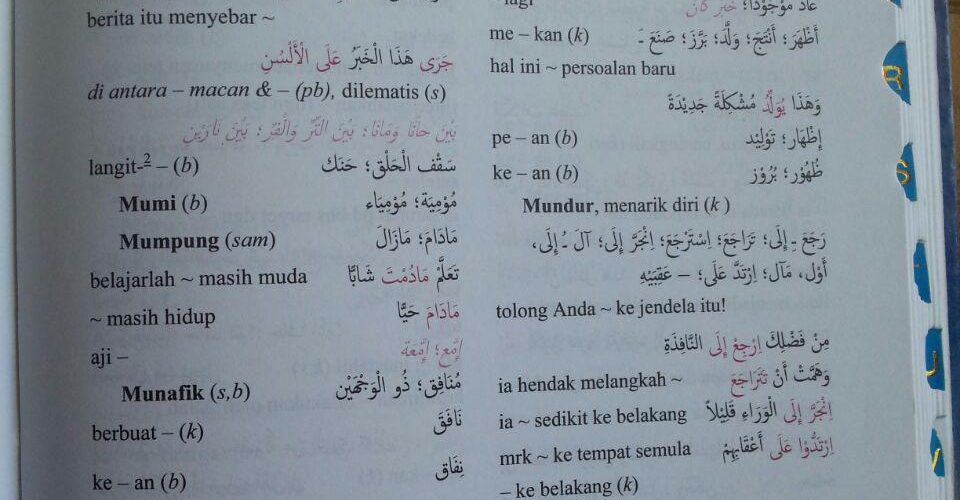 berita itu menyebar ~
جَرَى هَذَا الْخَبَرُ عَلَى الْأَلْسُنِ
di antara – macan & – (pb), dilematis (s)
بَيْنَ حَانَا وَمَانَا؛ بَيْنَ الشَّرِّ وَالْقَرِّ؛ بَيْنَ نَارَيْنِ
langit-2 – (b) سَقْف الْحَلْق؛ حَنَك
Mumi (b) مُوْمِيَة؛ مُوْمِيَاء
Mumpung (sam) مَادَامَ؛ مَازَالَ
belajarlah ~ masih muda تَعَلَّمْ مَادُمْتَ شَابًّا
~ masih hidup مَادَامَ حَيًّا
aji – إِمَّع؛ إِمَّعَة
Munafik (s,b) مُنَافِق؛ ذُو الْوَجْهَيْنِ
berbuat – (k) نَافَقَ
ke – an (b) نِفَاق
lagi عَادَ مَوْجُوْدًا؛ خَبَرُ كَانَ
me – kan (k) أَظْهَرَ؛ أَنْتَجَ؛ وَلَّدَ؛ بَرَّزَ؛ صَنَعَ ـَ
hal ini ~ persoalan baru
وَهَذَا يُوَلِّدُ مُشْكِلَةً جَدِيْدَةً
pe – an (b) إِظْهَار؛ تَوْلِيْد
ke – an (b) ظُهُوْر؛ بُرُوْز
Mundur, menarik diri (k)
رَجَعَ ـِ إِلَى؛ تَرَاجَعَ؛ اِسْتَرْجَعَ؛ اِنْجَرَّ إِلَى؛ آلَ ـُ إِلَى،
أَوْل، مَآل؛ اِرْتَدَّ عَلَى؛ – عَقِبَيْهِ
tolong Anda ~ ke jendela itu!
مِنْ فَضْلِكَ اِرْجِعْ إِلَى النَّافِذَةِ
ia hendak melangkah ~ وَهَمَّتْ أَنْ تَتَرَاجَعَ
ia ~ sedikit ke belakang اِنْجَرَّ إِلَى الْوَرَاءِ قَلِيْلاً
mrk ~ ke tempat semula اِرْتَدُّوْا عَلَى أَعْقَابِهِمْ
– ke belakang (k)
R
S
J